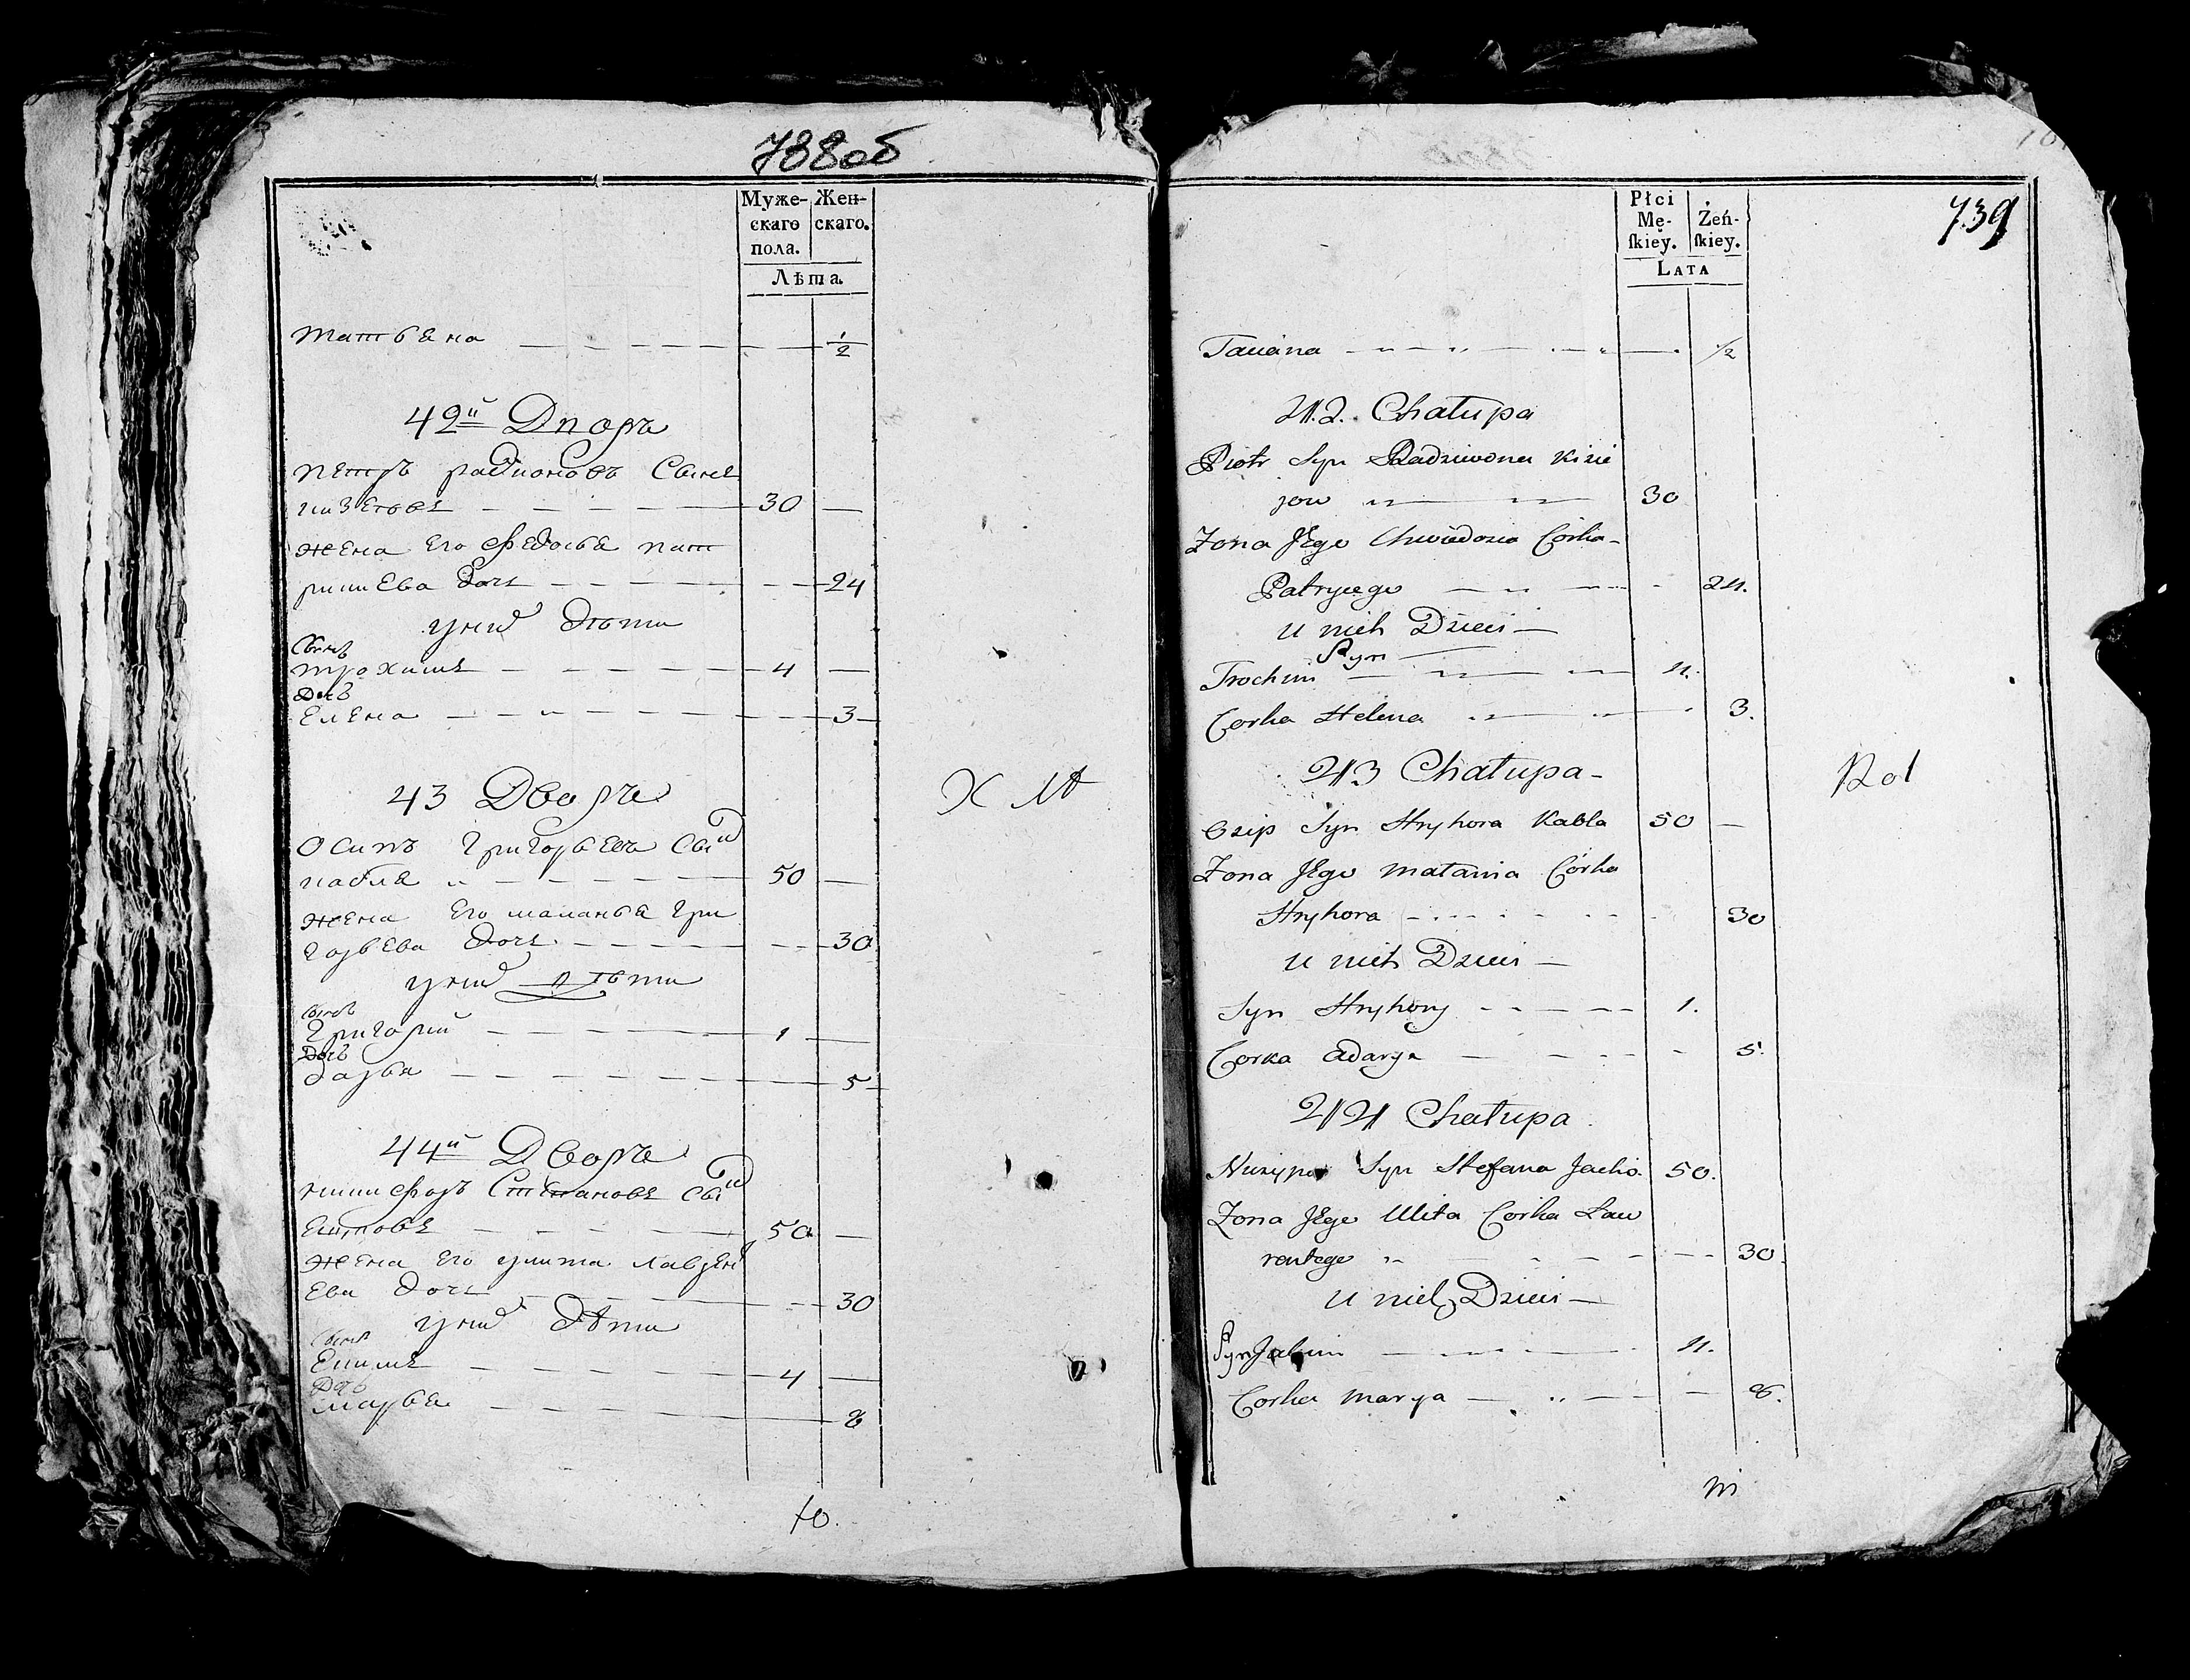 788об
Муже-
скаго
пола.
Жен-
скаго.
Лѣта.
татьяна — 1/2
42й Дворъ
петръ радионовъ Сынъ
— 30 —
жена Его федосья пат
рикиЕва дочь — 24
у них дѣти
Сынъ
трохимъ — 4 —
Дочь
Елена — 3
43 Дворъ
Х М
Осипъ Григорьевъ Сын
кабля — 50 —
жена Его маланья Гри
горьЕва дочь — 30
у них дѣти
Сынъ
Григорий — 1 —
Дочь
дарья — 5
44й Дворъ
никифоръ Степановъ Сын
— 50 —
жена Его улита лаврен
Ева дочь — 30
у них дѣти
Сынъ
Екимъ — 4 —
Дочь
марья — 8
10.
739
Płci
Mę-
ſkiey.
Żeń-
ſkiey.
LATA
Taciana — 1/2
42. Chałupa
Piotr Syn Radziwona Kizie
jow — 30
Zona Jego Chwiedozia Córka
Patryiego — 24.
u nich Dzieci —
Syn
Trochim — 4.
Corka Helena — 3.
43 Chałupa
Rol
Ozip Syn Hryhora Kabla 50 —
Zona Jego Matania Córka
Hryhora — 30
u nich Dzieci —
Syn Hryhory — 1.
Corka Adarya — 5.
44 Chałupa
Syn Stefana 50.
Zona Jego Ulita Corka Law
rentego — 30.
u nich Dzieci —
Syn Jakim — 4.
Corka Marya — 8.
m